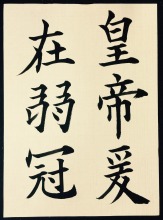 皇帝爰
在弱冠